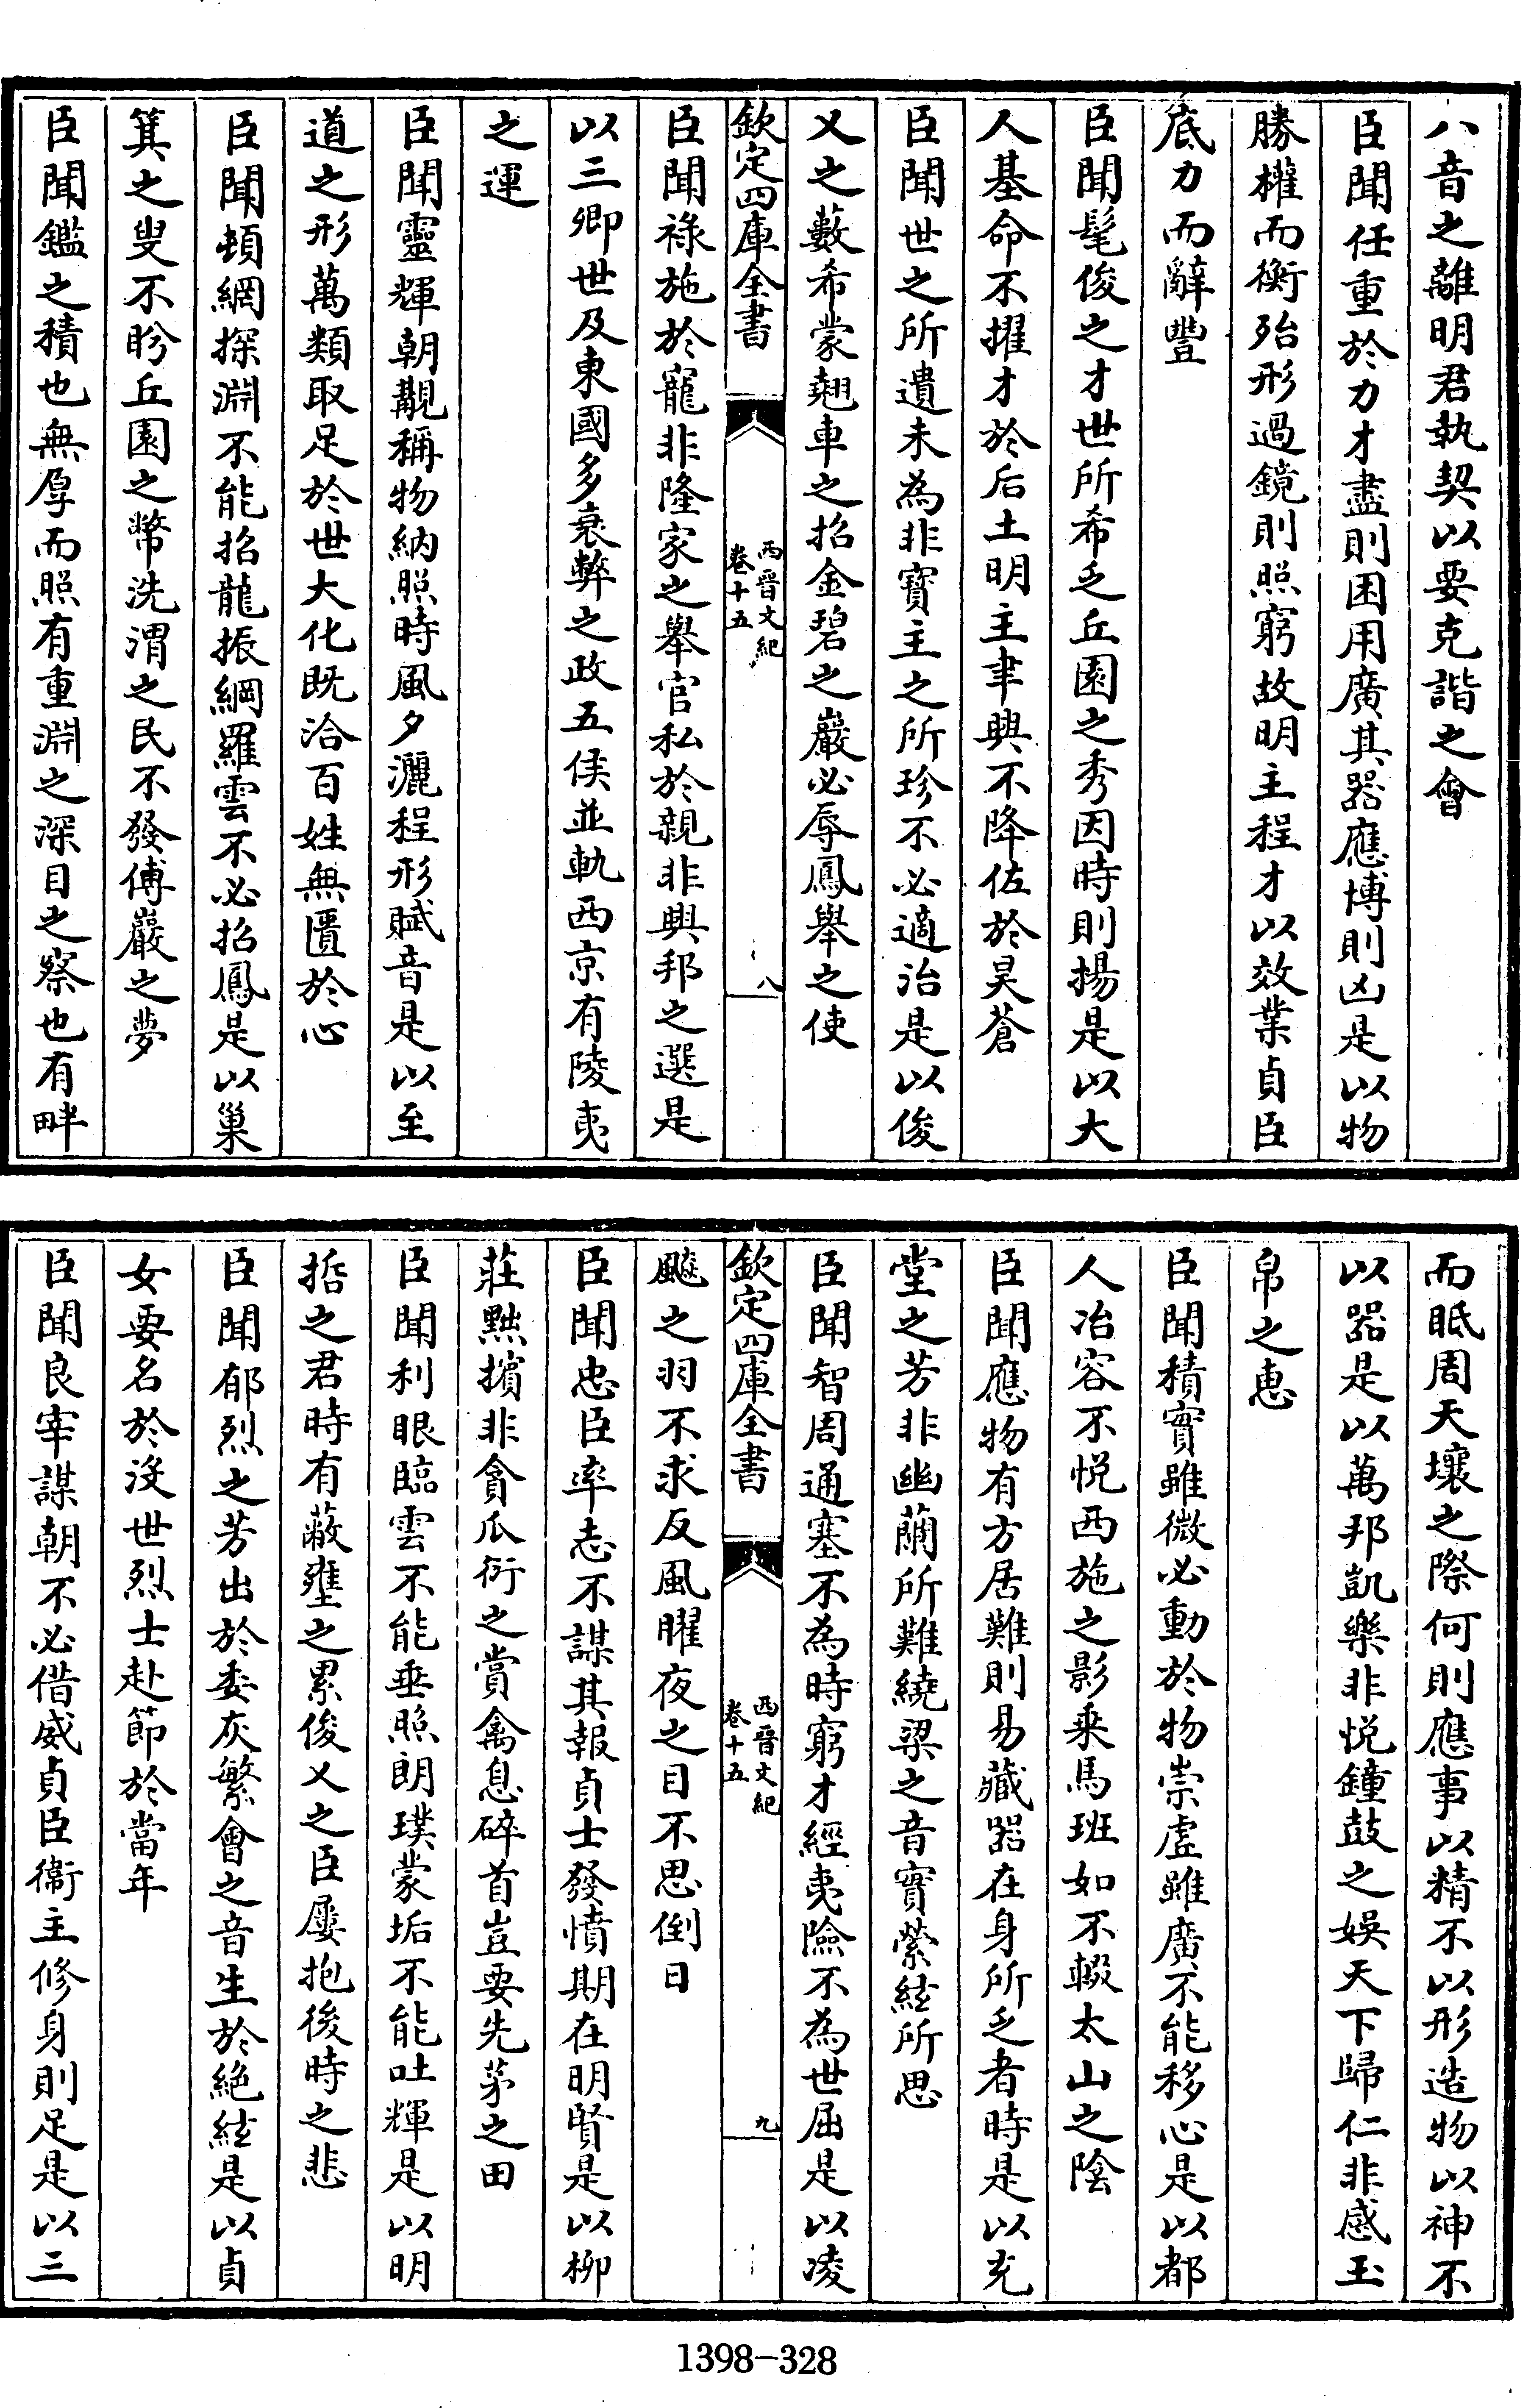 八音之離明君執契以要克諧之會
臣聞任重於力才盡則困用廣其器應博則凶是以物
勝權而衡殆形過鏡則照窮故明主程才以效業貞臣
底力而辭豐
臣聞髦俊之才世所希乏丘園之秀因時則揚是以大
人基命不擢才於后土明主聿興不降佐於昊蒼
臣聞世之所遺未為非寶主之所珍不必適治是以俊
乂之藪希蒙翹車之招金碧之巖必辱鳳舉之使
欽定四庫全書
西晉文紀
卷十五
八
臣聞祿施於寵非隆家之舉官私於親非興邦之選是
以三卿世及東國多衰弊之政五侯並軌西京有陵夷
之運
臣聞靈輝朝覯稱物納照時風夕灑程形賦音是以至
道之形萬類取足於世大化既洽百姓無匱於心
臣聞頓網探淵不能招龍振綱羅雲不必招鳳是以巢
箕之叟不盻丘園之幣洗渭之民不發傅巖之夢
臣聞鑑之積也無厚而照有重淵之深目之察也有畔
而眡周天壤之際何則應事以精不以形造物以神不
以器是以萬邦凱樂非悅鐘鼓之娛天下歸仁非感玉
帛之惠
臣聞積實雖微必動於物崇虛雖廣不能移心是以都
人冶容不悅西施之影乘馬班如不輟太山之陰
臣聞應物有方居難則易藏器在身所乏者時是以充
堂之芳非幽蘭所難繞梁之音實縈絃所思
臣聞智周通塞不為時窮才經夷險不為世屈是以凌
欽定四庫全書
西晉文紀
卷十五
九
飈之羽不求反風曜夜之目不思倒日
臣聞忠臣率志不謀其報貞士發憤期在明賢是以柳
莊黜擯非貪瓜衍之賞禽息碎首豈要先茅之田
臣聞利眼臨雲不能垂照朗璞蒙垢不能吐輝是以明
悊之君時有蔽壅之累俊乂之臣屢抱後時之悲
臣聞郁烈之芳出於委灰繁會之音生於絕絃是以貞
女要名於沒世烈士赴節於當年
臣聞良宰謀朝不必借威貞臣衞主修身則足是以三
1398-328